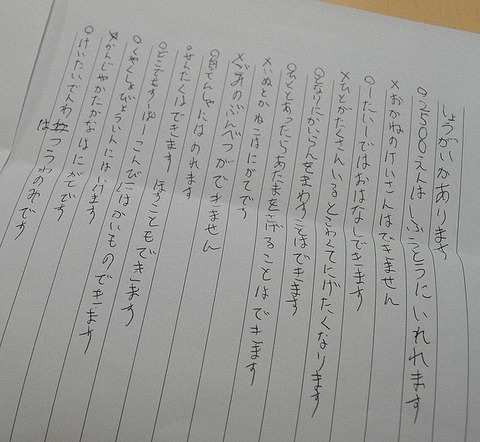 しょうがいかあります
○2500えんはふうとうにいれれます
×おかねのけいさんはできません
○1たい1ではおはなしできます
×ひとがたくさんいるとこわくてにげたくなります
○となりにかいらんをまわすことはできます
○ひとにあったらあたまをさげることはできます
×いぬとかねこはにがてです
×ごみのぶんべつができません
○自てんしゃにはのれます
○せんたくはできます ほすこともできます
○どこでもすーぱー こんびにはかいものできます
○くやくしょびょういんにはいけます
×かんじやかたかなはにがてです
○けいたいでんわはつうわのみです